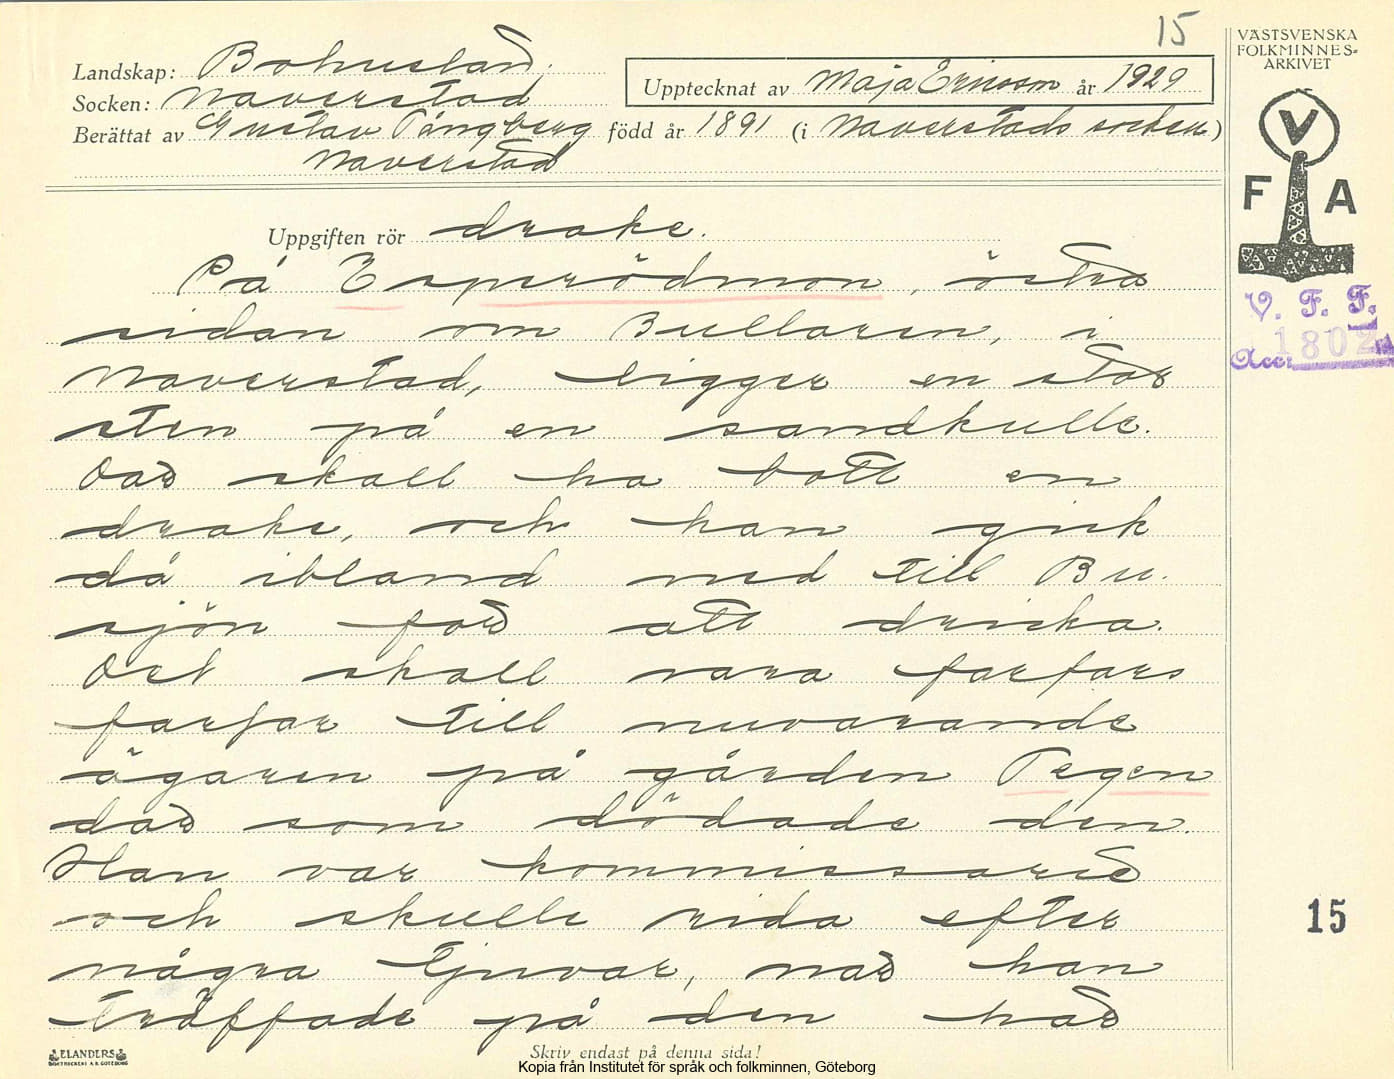 15
VÄSTSVENSKA
FOLKMINNES-
ARKIVET
Landskap: Bohuslän.
Socken: Naverstad
Upptecknat av Maja Ericson år 1929
Berättat av Gustav Tångberg född år 1891 (i Naverstads socken)
Naverstad
V
F A
Uppgiften rör drake.
V. F. F.
Acc: 1802
På Esperödmon, östra
sidan om Bullaren, i
Naverstad, ligger en stor
sten på en sandkulle.
Där skall ha bott en
drake, och han gick
då ibland ned till Bu.
sjön för att dricka.
Det skall vara farfars
farfar till nuvarande
ägaren på gården Tegen
där som dödade den.
Han var kommissarie
och skulle rida efter
några tjuvar, när han
träffade på den här
15
ELANDERS
Skriv endast på denna sida!
Kopia från Institutet för språk och folkminnen, Göteborg